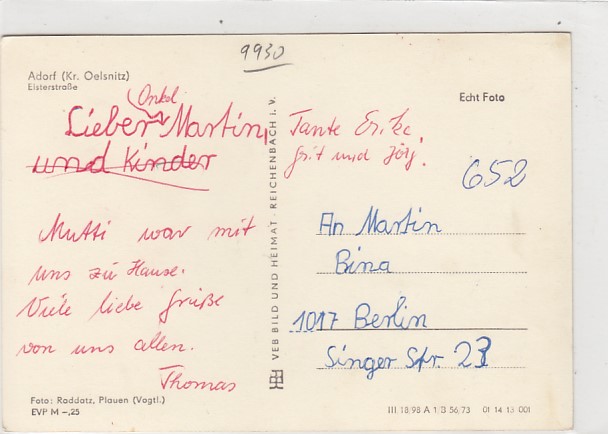 9930
Adorf (Kr. Oelsnitz)
Elsterstraße
Echt Foto
Onkel
Lieber Martin,
und Kinder
Tante Erika,
Grit und Jörg!
652
Mutti war mit
uns zu Hause.
Viele liebe Grüße
von uns allen.
Thomas
VEB BILD UND HEIMAT · REICHENBACH I. V.
An Martin
Bina
1017 Berlin
Singer Str. 23
Foto: Raddatz, Plauen (Vogtl.)
EVP M –,25
III.18.98 A 1/3 56,73 01 14 13 001